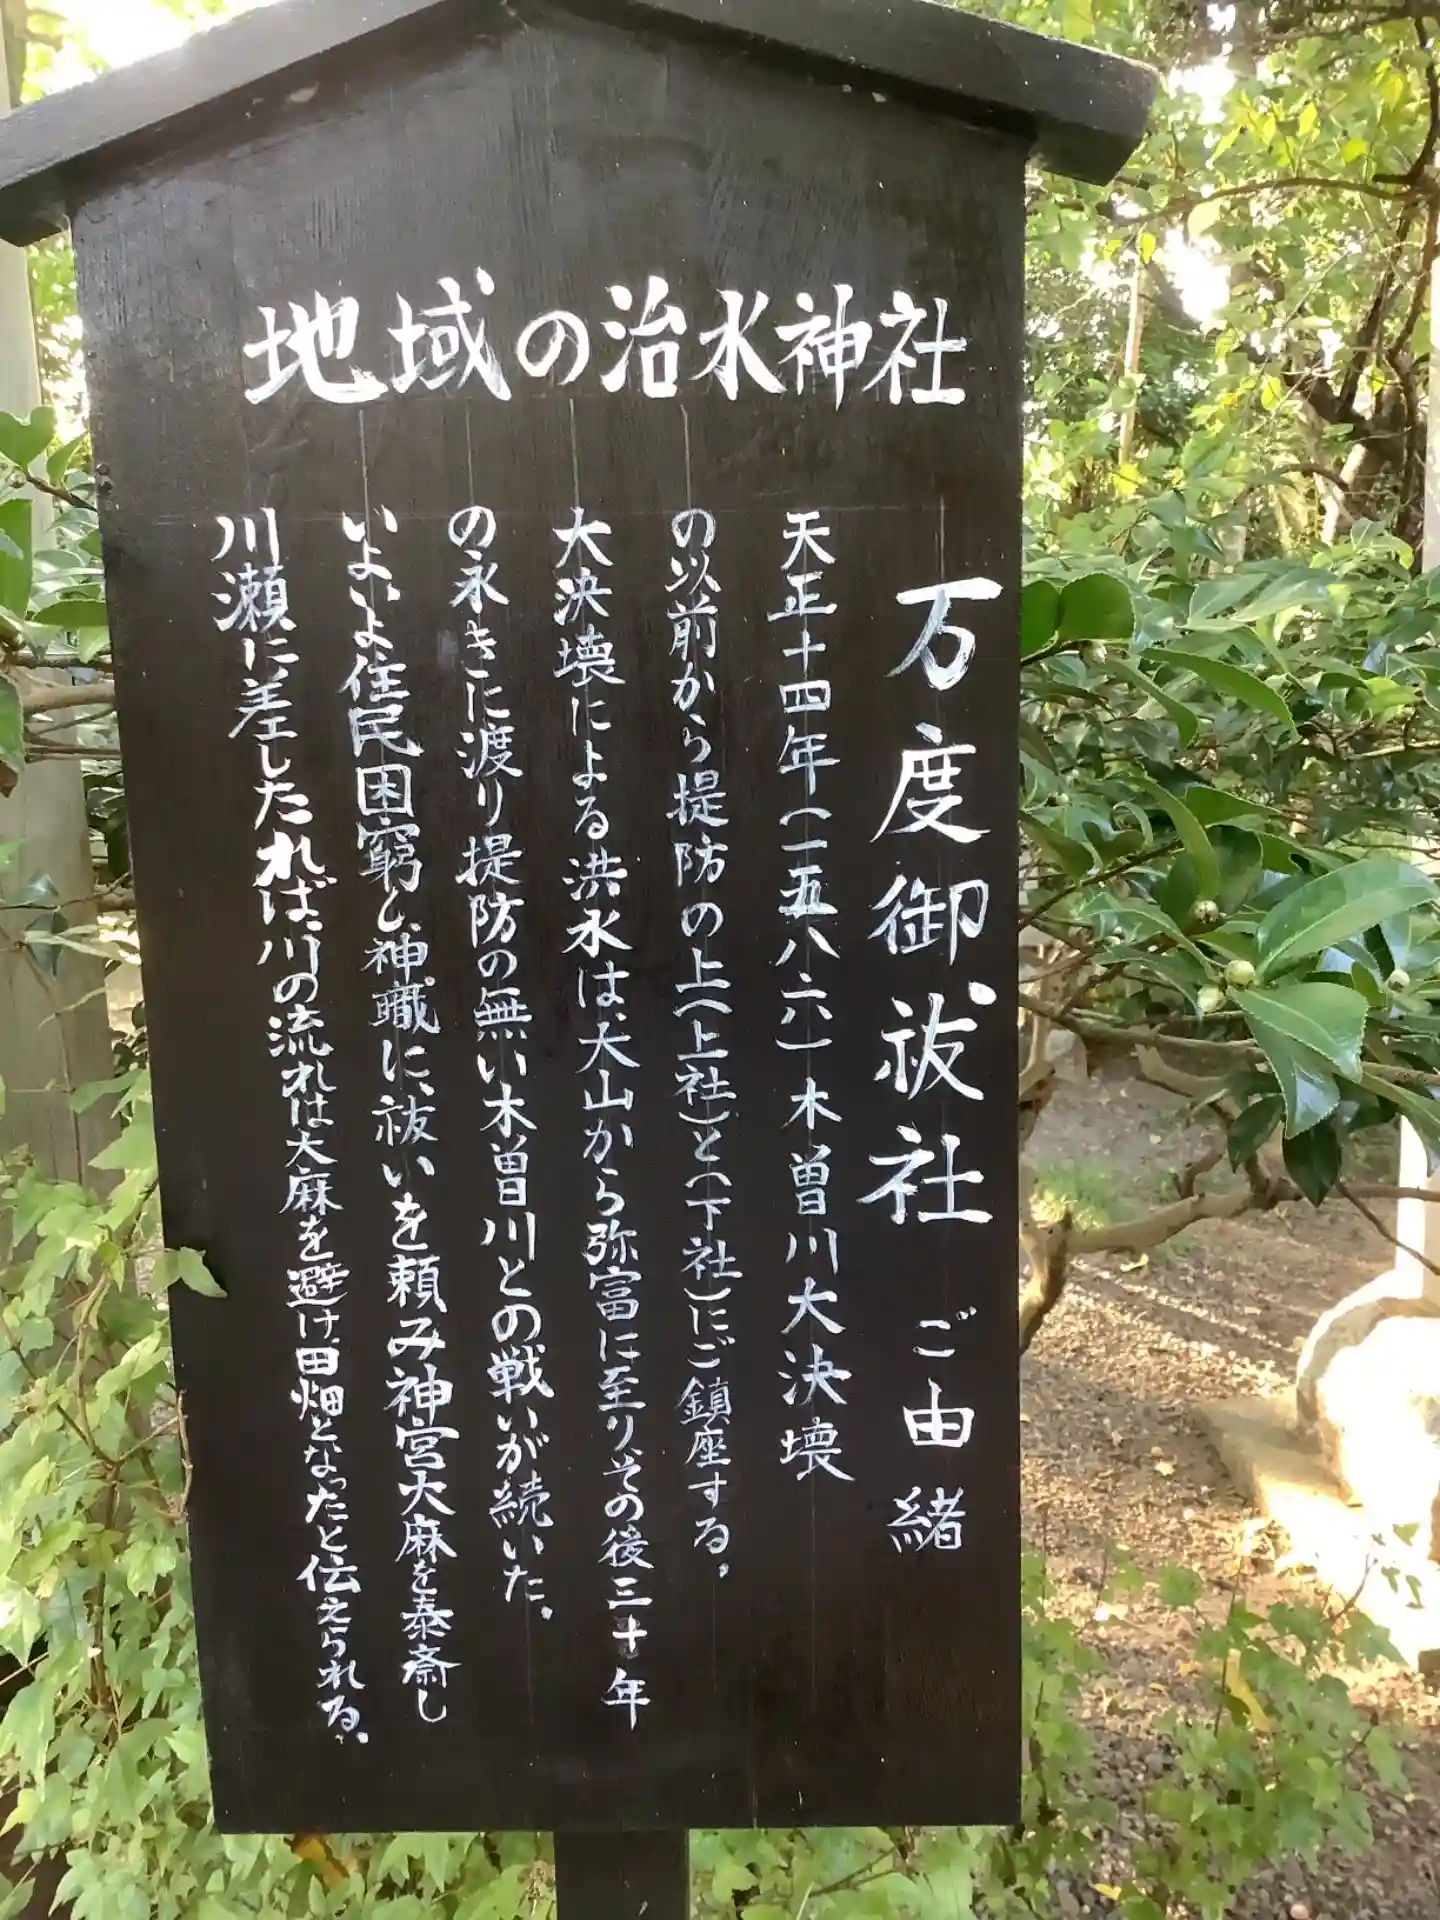 地域の治水神社
万度御祓社 ご由緒
天正十四年(一五八六)木曽川大決壊
の以前から提防の上(上社)と(下社)にご鎮座する。
大決壊による洪水は、犬山から弥富に至りその後三十年
の永きに渡り提防の無い木曽川との戦いが続いた。
いよいよ住民困窮し、神職に、祓いを頼み神宮大麻を泰斎し
川瀬に差したれば、川の流れは大麻を避け、田畑となったと伝えられる。